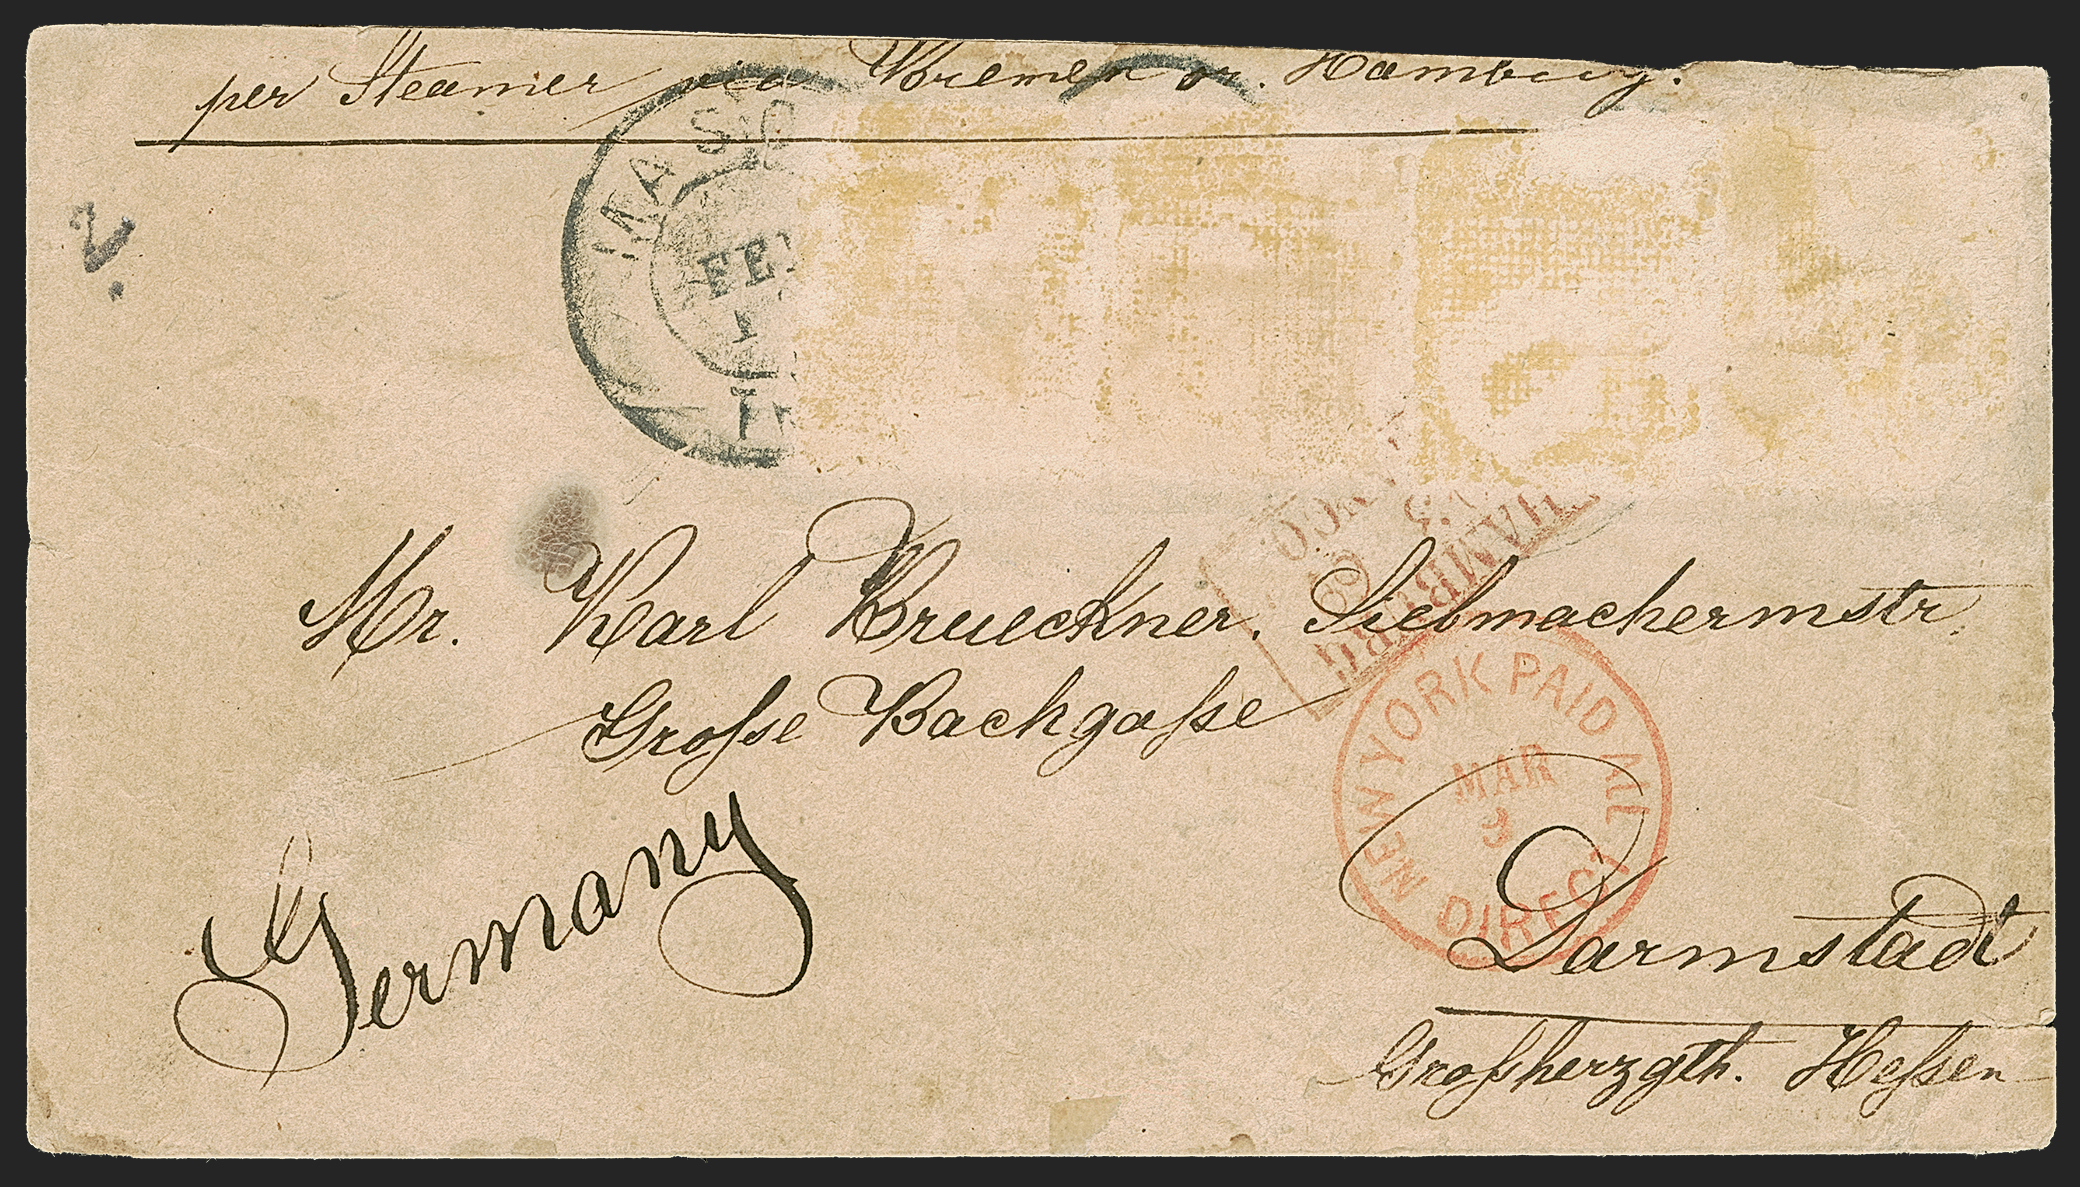 per Steamer via Bremen or Hamburg.
2.
Mr. Karl Brueckner. Siebmachermstr.
Große Bachgaße
HAMBURG
NEW YORK PAID ALL
MAR
3
DIRECT
Germany
Darmstadt
Großherzgth. Heßen